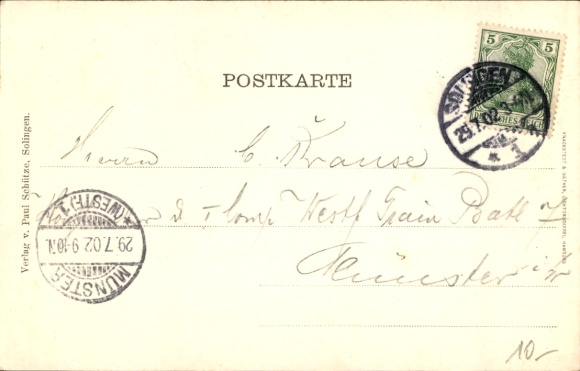 POSTKARTE
5 5
SOLINGEN
29.7.02
* 1
Herrn C. Krause
d 1 Comp Westf Train Batl 7
Münster i/W
MÜNSTER
29.7.02 9-10N.
*(WESTF.)1
Verlag v. Paul Schütze, Solingen.
10.-